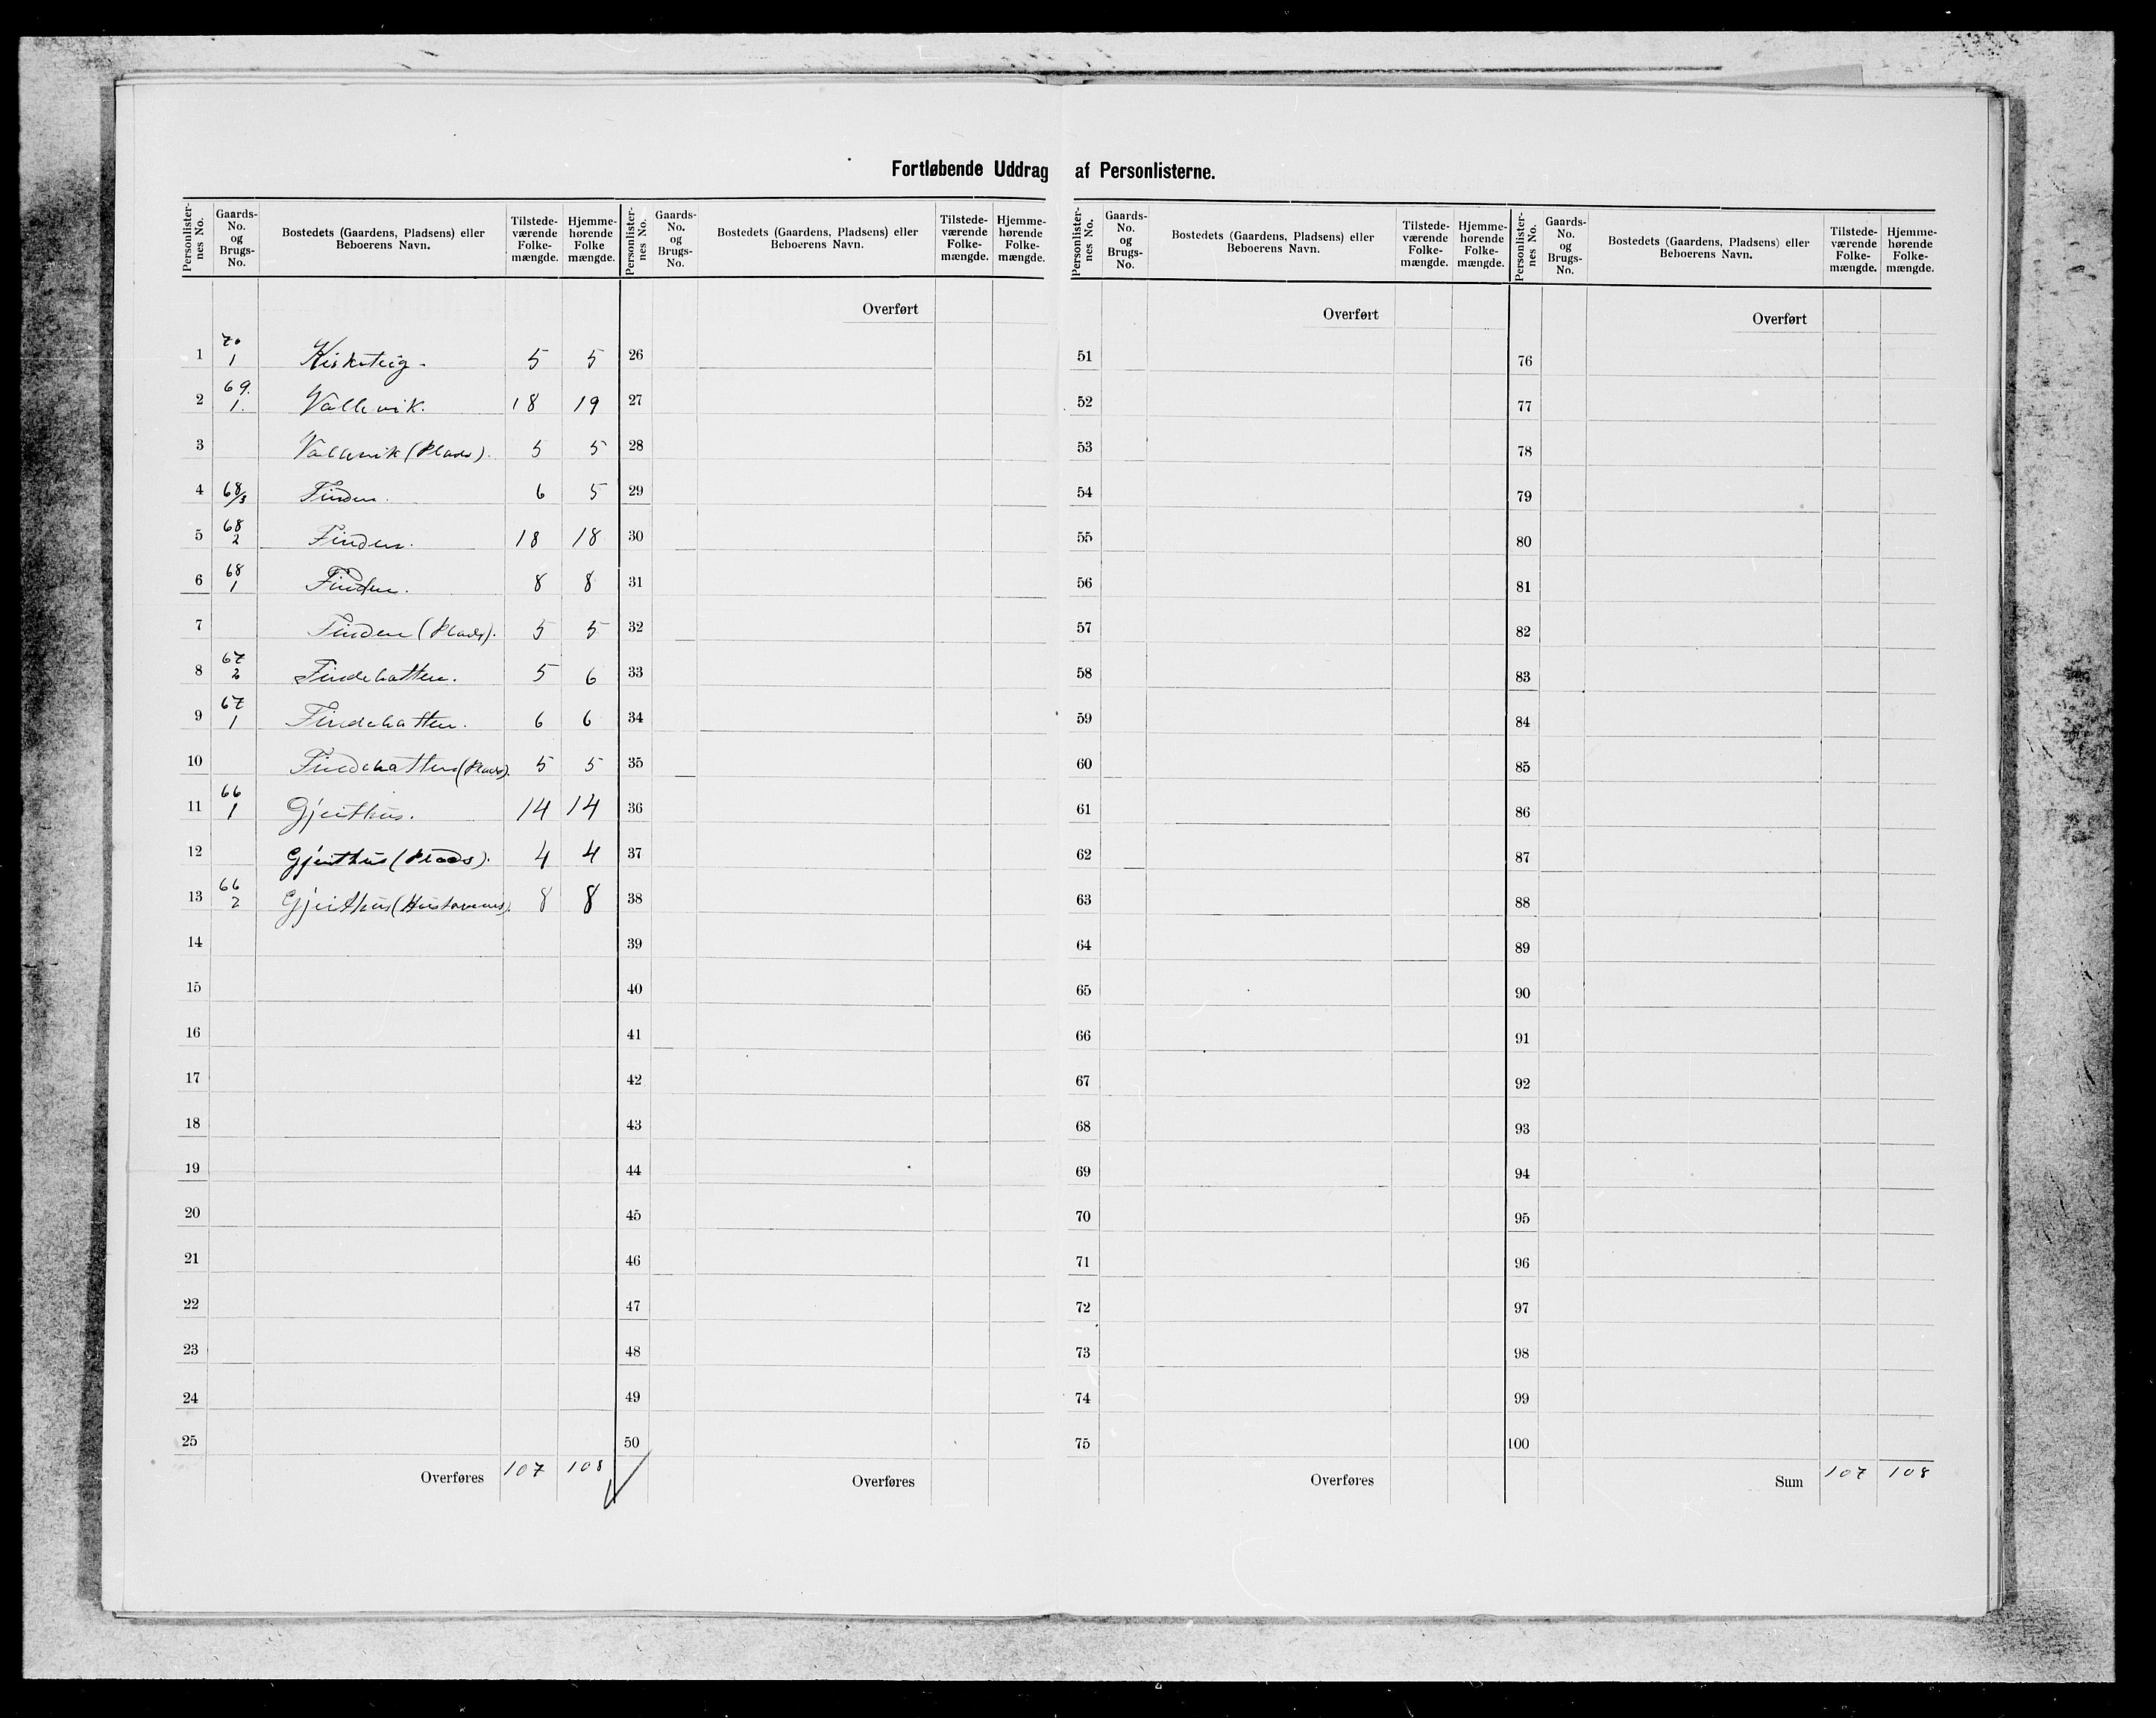 Fortløbende Uddrag af Personlisterne.
Personlister-nes No. | Gaards-No. og Brugs-No. | Bostedets (Gaardens, Pladsens) eller Beboerens Navn. | Tilstede-værende Folke-mængde. | Hjemme-hørende Folke mængde.
Personlister-nes No. | Gaards-No. og Brugs-No. | Bostedets (Gaardens, Pladsens) eller Beboerens Navn. | Tilstede-værende Folke-mængde. | Hjemme-hørende Folke-mængde.
Personlister-nes No. | Gaards-No. og Brugs-No. | Bostedets (Gaardens, Pladsens) eller Beboerens Navn. | Tilstede-værende Folke-mængde. | Hjemme-hørende Folke-mængde.
Personlister-nes No. | Gaards-No. og Brugs-No. | Bostedets (Gaardens, Pladsens) eller Beboerens Navn. | Tilstede-værende Folke-mængde. | Hjemme-hørende Folke-mængde.
1 70/1 5 5
2 69./1. Vallevik. 18 19
3 Vallevik (Plads). 5 5
4 68/3 Finden. 6 5
5 68/2 Finden. 18 18
6 68/1 Finden. 8 8
7 Finden (Plads). 5 5
8 67/2 Findebotten. 5 6
9 67/1 Findebotten. 6 6
10 Findebotten (Plads). 5 5
11 66/1 Gjeithus. 14 14
12 Gjeithus (Plads). 4 4
13 66/2 Gjeithus 8 8
14
15
16
17
18
19
20
21
22
23
24
25
Overføres 107 108
Overført
26
27
28
29
30
31
32
33
34
35
36
37
38
39
40
41
42
43
44
45
46
47
48
49
50
Overføres
Overført
51
52
53
54
55
56
57
58
59
60
61
62
63
64
65
66
67
68
69
70
71
72
73
74
75
Overføres
Overført
76
77
78
79
80
81
82
83
84
85
86
87
88
89
90
91
92
93
94
95
96
97
98
99
100
Sum 107 108